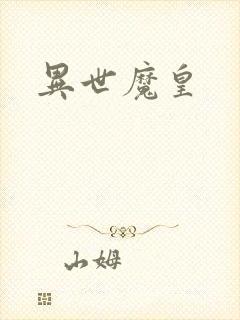 異世魔皇
山姆